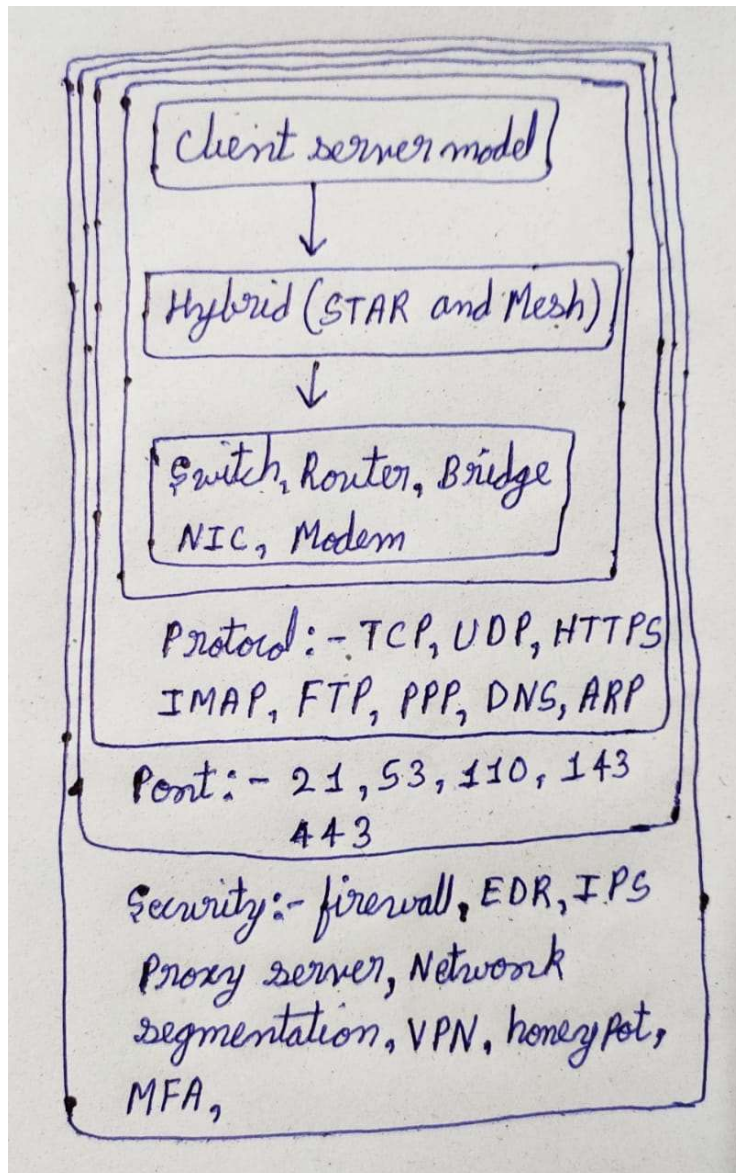 Client server model
Hybrid (STAR and Mesh)
Switch, Router, Bridge
NIC, Modem
Protocol:- TCP, UDP, HTTPS
IMAP, FTP, PPP, DNS, ARP
Port:- 21, 53, 110, 143
443
Security:- firewall, EDR, IPS
Proxy server, Network
segmentation, VPN, honeypot,
MFA,